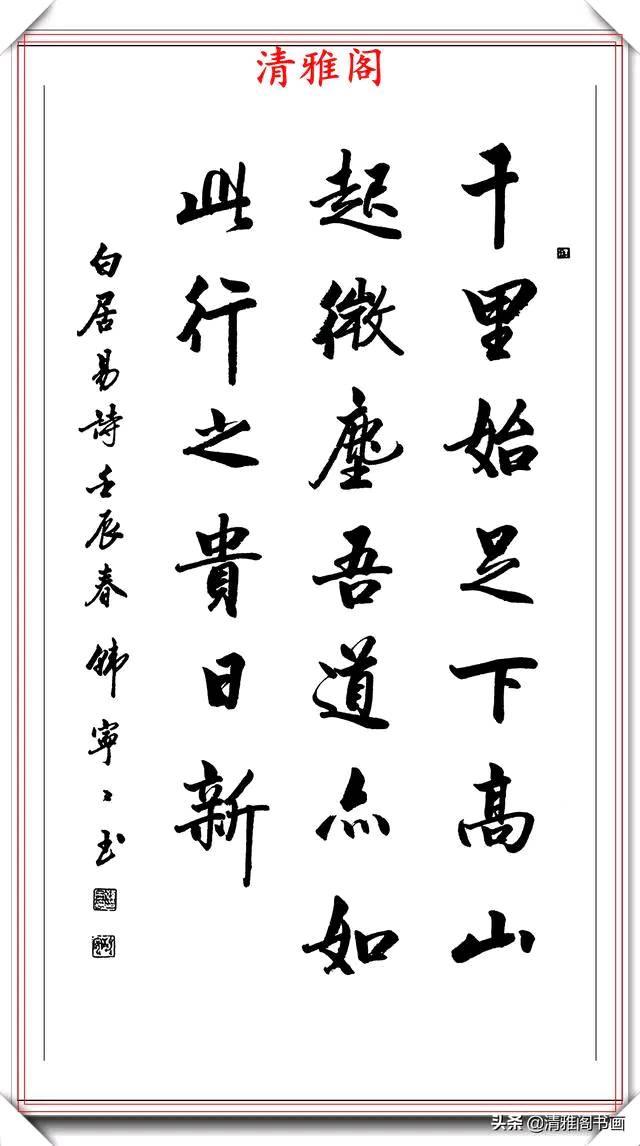 清雅阁
千里始足下高山
起微塵吾道亦如
此行之貴日新
白居易詩壬辰春韩寧寧书
头条@清雅阁书画